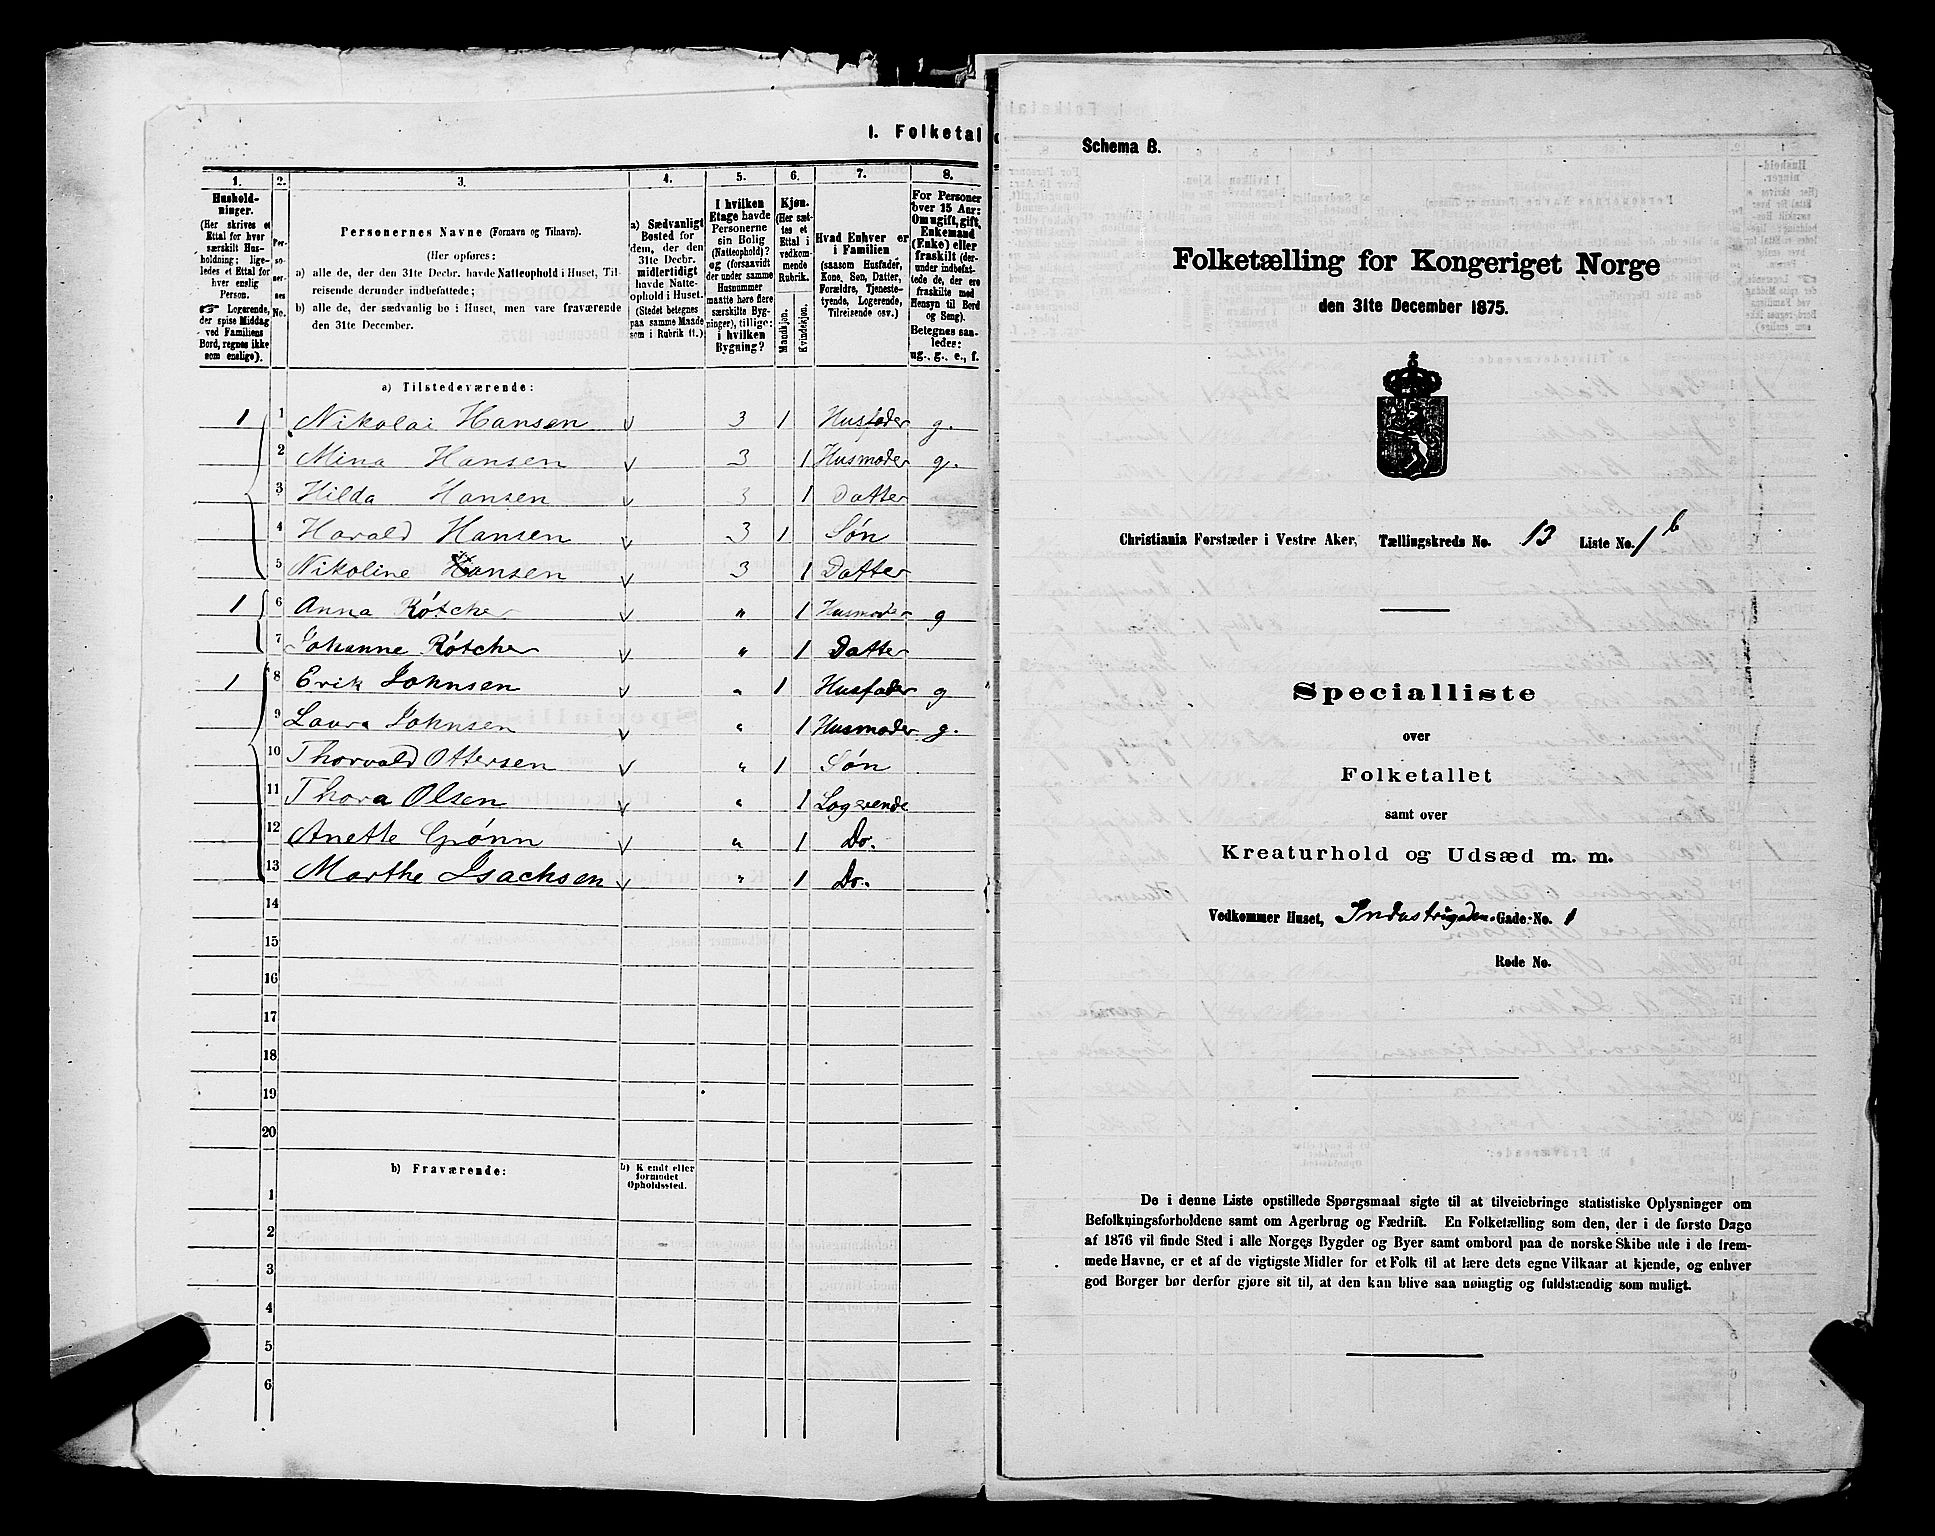 1. Folketal
1. 2. 3. 4. 5. 6. 7. 8.
Hushold-
ninger.
(Her skrives et
Ettal for hver
særskilt Hus-
holdning; lige-
ledes et Ettal for
hver enslig
Person.
☞ Logerende,
der spise Middag
ved Familiens
Bord, regnes ikke
som enslige).
Per-
so-
ner-
nes
No.
Personernes Navne (Fornavn og Tilnavn).
(Her opføres:
a) alle de, der den 31te Decbr. havde Natteophold i Huset, Til-
reisende derunder indbefattede;
b) alle de, der sædvanlig bo i Huset, men vare fraværende
den 31te December.
a) Sædvanligt
Bosted for
dem, der den
31te Decbr.
midlertidigt
havde Natte-
ophold i Huset.
(Stedet betegnes
paa samme Maade
som i Rubrik 11.)
I hvilken
Etage havde
Personerne
sin Bolig
(Natteophold)?
og (forsaavidt
der under samme
Husnummer
maatte høre flere
særskilte Byg-
ninger), tillige:
i hvilken
Bygning?
Kjøn.
(Her sæt-
tes et
Ettal i
vedkom-
mende
Rubrik.
Mandkjøn.
Kvindekjøn.
Hvad Enhver er
i Familien
(saasom Husfader,
Kone, Søn, Datter,
Forældre, Tjeneste-
tyende, Logerende,
Tilreisende osv.)
For Personer
over 15 Aar:
Om ugift, gift,
Enkemand
(Enke) eller
fraskilt (der-
under indbefat-
tede de, der ere
fraskilte med
Hensyn til Bord
og Seng).
Betegnes saa-
ledes:
ug., g., e., f.
a) Tilstedeværende:
1 1 Nikolai Hansen v 3 1 Husfader g.
2 Mina Hansen v 3 1 Husmoder g.
3 Hilda Hansen v 3 1 Datter
4 Harald Hansen v 3 1 Søn
5 Nikoline Hansen v 3 1 Datter
1 6 Anna Røtcher v " 1 Husmoder g
7 Johanne Røtcher v " 1 Datter
1 8 Erik Johnsen v " 1 Husfader g
9 Laura Johnsen v " 1 Husmoder g.
10 Thorvald Ottersen v " 1 Søn
11 Thora Olsen v " 1 Logerende
12 Anette Grønn v " 1 Do.
13 Marthe Isachsen v " 1 Do.
14
15
16
17
18
19
20
b) Fraværende:
b) Kjendt eller
formodet
Opholdssted.
1
2
3
4
5
6
Schema B.
Folketælling for Kongeriget Norge
den 31te December 1875.
Christiania Forstæder i Vestre Aker, Tællingskreds No. 13 Liste No. 1 b
Specialliste
over
Folketallet
samt over
Kreaturhold og Udsæd m. m.
Vedkommer Huset, Industrigaden Gade No. 1
Rode No.
De i denne Liste opstillede Spørgsmaal sigte til at tilveiebringe statistiske Oplysninger om
Befolkningsforholdene samt om Agerbrug og Fædrift. En Folketælling som den, der i de første Dage
af 1876 vil finde Sted i alle Norges Bygder og Byer samt ombord paa de norske Skibe ude i de frem-
mede Havne, er et af de vigtigste Midler for et Folk til at lære dets egne Vilkaar at kjende, og enhver
god Borger bør derfor gjøre sit til, at den kan blive saa nøiagtig og fuldstændig som muligt.